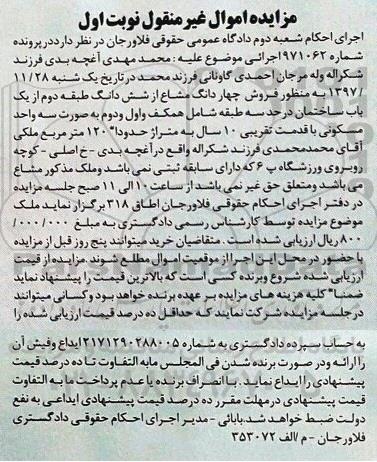 مزایده اموال غیر منقول نوبت اول
اجرای احکام شعبه دوم دادگاه عمومی حقوقی فلاورجان در نظر دارد در پرونده
شماره ۹۷۱۰۶۲ اجرائی موضوع علیه : محمد مهدی آغچه بدی فرزند
شکراله وله مرجان احمدی گاونانی فرزند محمد در تاریخ یک شنبه ۱۱/۲۸
/۱۳۹۷ به منظور فروش چهار دانگ مشاع از شش دانگ طبقه دوم از یک
باب ساختمان در حد سه طبقه شامل همکف واول ودوم به صورت سه واحد
مسکونی با قدمت تقریبی ۱۰ سال به متراژ حدودا" ۱۲۰ متر مربع ملکی
آقای محمدمحمدی فرزند شکراله واقع در آغچه بدی -خ اصلی - کوچه
روبروی ورزشگاه پ ۶ که دارای سابقه ثبتی نمی باشد وملک مذکور مشاع
می باشد ومتعلق حق غیر نمی باشد از ساعت ۱۰ الی ۱۱ صبح جلسه مزایده
در دفتر اجرای احکام حقوقی فلاورجان اطاق ۳۱۸ برگزار نماید ملک
موضوع مزایده توسط کارشناس رسمی دادگستری به مبلغ ۰۰۰/۰۰۰/
۸۰۰ ریال ارزیابی شده است . متقاضیان خرید میتوانند پنج روز قبل از مزایده
با حضور در محل این اجرا از موقعیت اموال مطلع شوند. مزایده از قیمت
ارزیابی شده شروع وبرنده کسی است که بالاترین قیمت را پیشنهاد نماید
ضمنا" کلیه هزینه های مزایده بر عهده برنده خواهد بود وکسانی میتوانند
در جلسه مزایده شرکت نمایند که حداقل ده درصد قیمت ارزیابی شده را
به حساب سپرده دادگستری به شماره ۲۱۷۱۲۹۰۲۸۸۰۰۵ ایداع وفیش آن
را ارائه ودر صورت برنده شدن فی المجلس مابه التفاوت تا ده درصد قیمت
پیشنهادی را ایداع نماید . با انصراف برنده یا عدم پرداخت ما به التفاوت
قیمت پیشنهادی در مهلت مقرر ده درصد قیمت پیشنهادی ایداعی به نفع
دولت ضبط خواهد شد.بابائی - مدیر اجرای احکام حقوقی دادگستری
فلاورجان - م /الف ۳۵۳۰۷۲